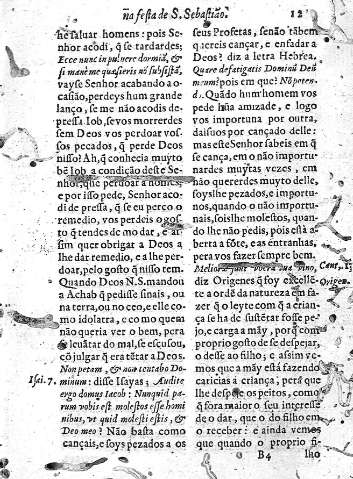 na festa de S. Sebastião. 12
he saluar homens: pois Senhor
acodi, q̃ se tardardes;
Ecce nunc in puluere dormiã, &
si mane me quæsieris nõ subsistã,
vayse Senhor acabando a occasião,
perdeys hum grande
lanço, se me não acodis depressa
Iob, se vos morrerdes
sem Deos vos perdoar vossos
peccados, q̃ perde Deos
nisso? Ah, q̃ conhecia muyto
bẽ Iob a condição deste Senhor,
que perdoar a homẽs,
e por isso pede, Senhor acodi
de pressa, q̃ se eu perco o
remedio, vos perdeis o gosto
q̃ tendes de mo dar, e assim
quer obrigar a Deos a
lhe dar remedio, e a lhe perdoar,
pelo gosto q̃ nisso tem.
Quando Deos N.S. mandou
a Achab q̃ pedisse sinais, ou
na terra, ou no ceo, elle como
idolatra, e como quem
não queria ver o bem, pera
se leuãtar do mal, se escusou,
cõ julgar q̃ era tẽtar a Deos.
Non petam, & non tentabo Dominum:
disse Isayas; Audite
ergo domus Iacob: Nunquid parum
vobis est molestos esse hominibus,
vt quid molesti estis, &
Deo meo? Não basta como
cançais, e soys pezados a os
Isai. 7.
seus Profetas, senão tãbem
quereis cançar, e enfadar a
Deos? diz a letra Hebrea.
Quare defatigatis Dominũ Deũ
meum? pois em que? Nõ petendo.
Quãdo hum homem vos
pede hũa amizade, e logo
vos importuna por outra,
daisuos por cançado delle:
mas este Senhor sabeis em q̃
se cança, em o não importunardes
muytas vezes, em
não quererdes muyto delle,
soylhe pezados, e importunos,
quando o não importunais,
soislhe molestos, quando
lhe não pedis, pois está aberta
a fõte, e as entranhas,
pera vos fazer sempre bem.
Meliora sunt vbera tua vino,
diz Origenes q̃ foy excellẽte
a ordẽ da natureza em fazer
q̃ o leyte com q̃ a criança
se ha de sustẽtar fosse pejo,
e carga a mãy, porq̃ com
proprio gosto de se despejar,
o desse ao filho; e assim vemos
que a mãy está fazendo
caricias a criança, pera que
lhe despeje os peitos, como
q̃ fora maior o seu interesse
de o dar, que o do filho em
o receber: e ainda vemos
que quando o proprio fi-
Cant. 1.
Origen.
B4 lho